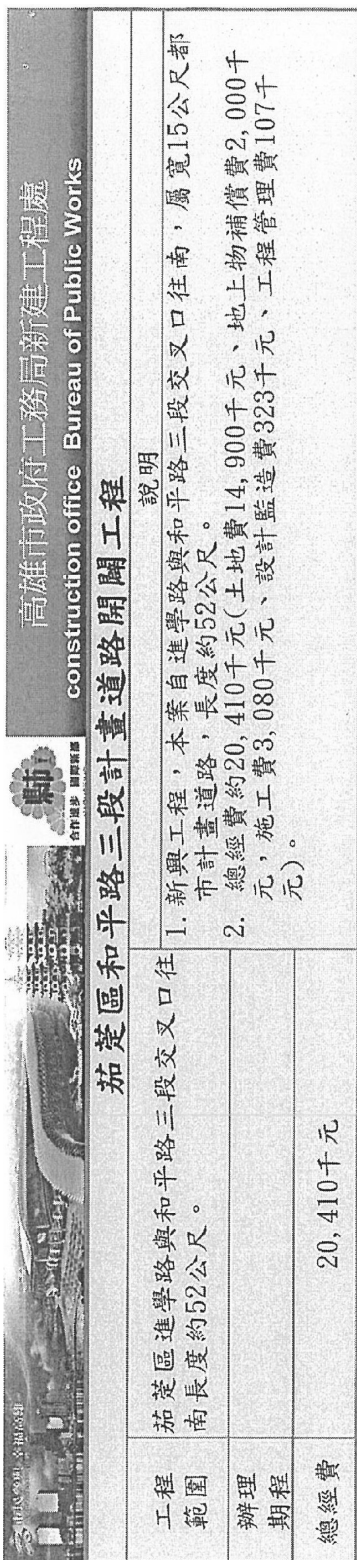 高雄市政府工務局新建工程處
construction office Bureau of Public Works
合作進步 國際新都
茄萣區和平路三段計畫道路開闢工程
工程
範圍
茄萣區進學路與和平路三段交叉口往
南長度約52公尺。
辦理
期程
總經費
20,410千元
說明
1. 新興工程，本案自進學路與和平路三段交叉口往南，屬寬15公尺都
市計畫道路，長度約52公尺。
2. 總經費約20,410千元(土地費14,900千元、地上物補償費2,000千
元，施工費3,080千元、設計監造費323千元、工程管理費107千
元)。